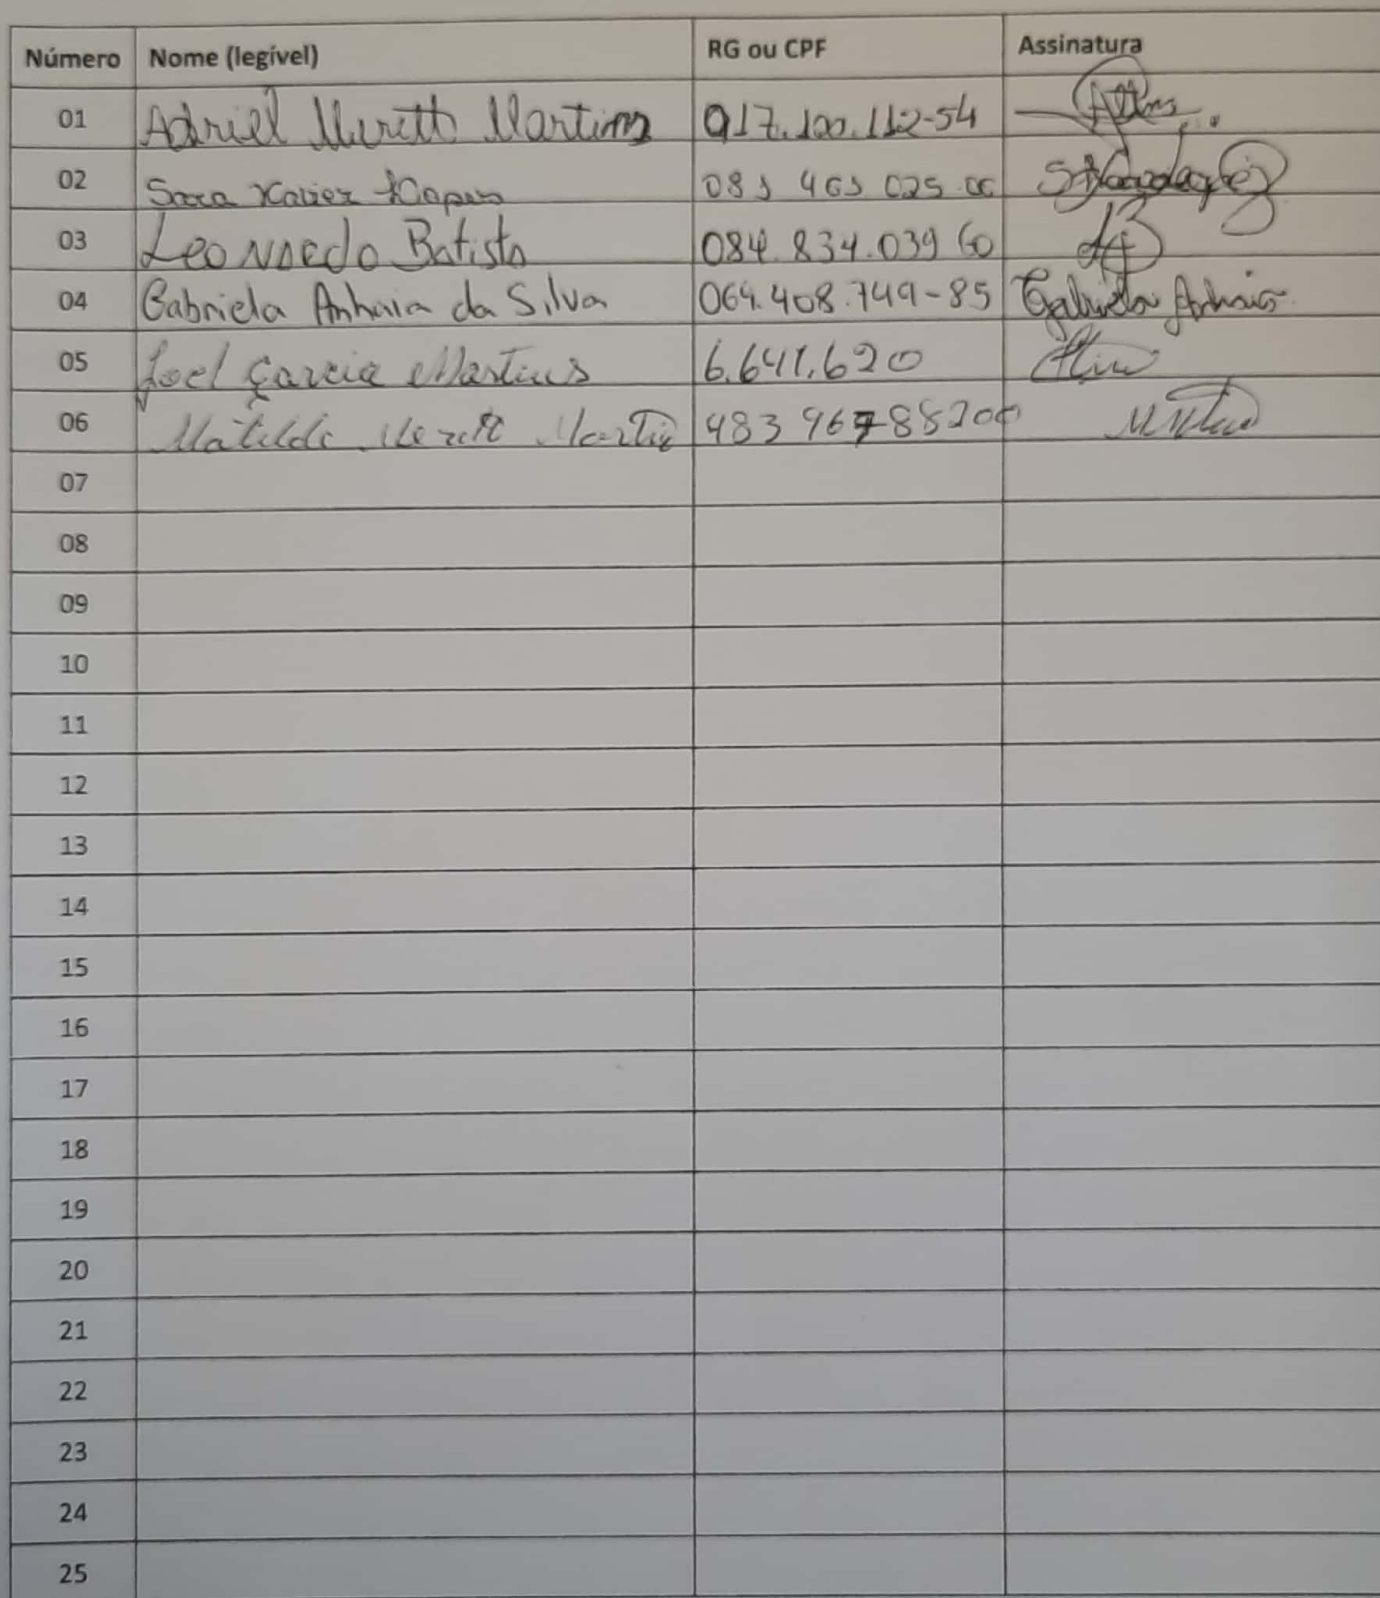 Número Nome (legível) RG ou CPF Assinatura
01 Adriel Meretti Martins 917.100.112-54
02 Sara Xavier 083 463 025.06
03 Leonardo Batista 084.834.039 60
04 Gabriela Anhaia da Silva 064.408.749-85 Gabriela Anhaia
05 Joel Garcia Martins 6.641.620
06 Matilde Martins 483 967 88200
07
08
09
10
11
12
13
14
15
16
17
18
19
20
21
22
23
24
25